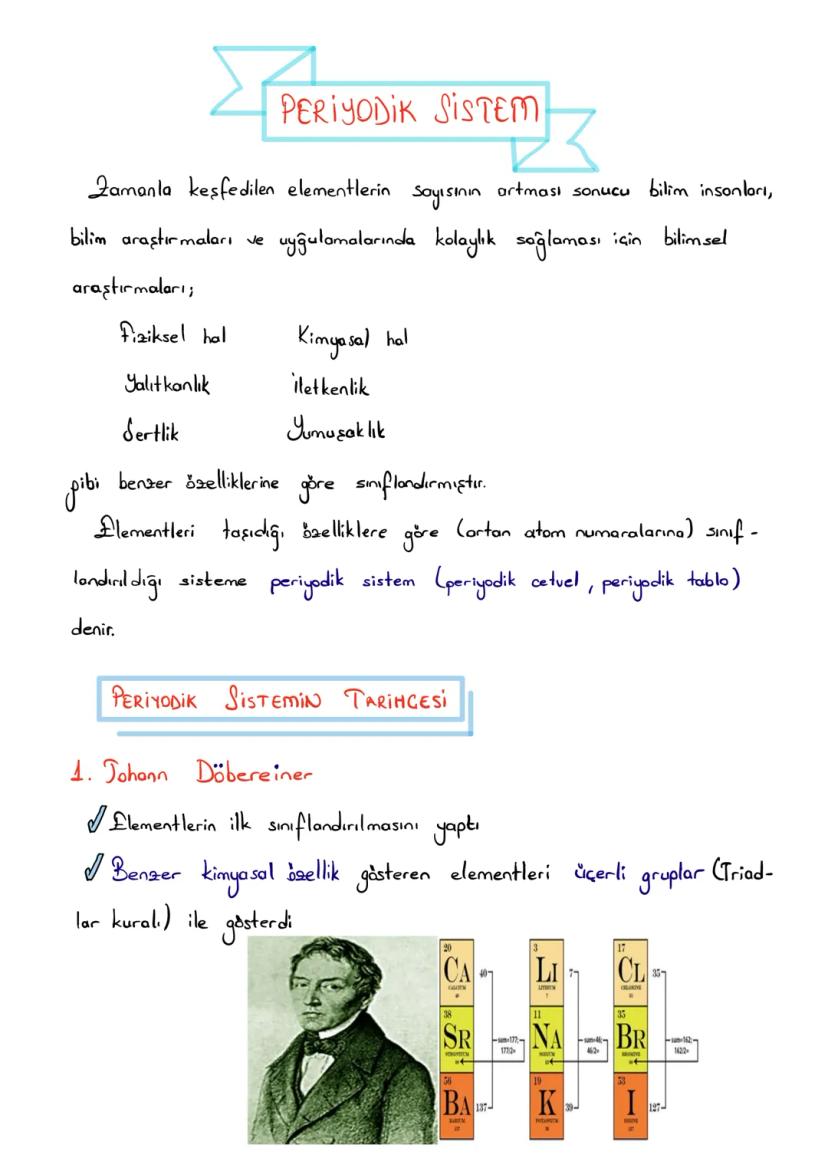 PERİYODİK SİSTEM
Zamanla keşfedilen elementlerin sayısının artması sonucu bilim insanları,
bilim araştırmaları ve uyğulamalarında kolaylık sağlaması için bilimsel
araştırmaları;
Fiziksel hal Kimyasal hal
Yalıtkanlık İletkenlik
Sertlik Yumuşaklık
gibi benzer özelliklerine göre sınıflandırmıştır.
Elementleri taşıdığı özelliklere göre (artan atom numaralarına) sınıf-
landırıldığı sisteme periyodik sistem (periyodik cetvel, periyodik tablo)
denir.
PERİYODİK SİSTEMİN TARİHÇESİ
1. Johann Döbereiner
Elementlerin ilk sınıflandırılmasını yaptı
Benzer kimyasal özellik gösteren elementleri üçerli gruplar (Triad-
lar kuralı) ile gösterdi
20 3 17
CA 40 LI 7 CL 35
CALCIUM LITHIUM CHLORINE
38 11 35
SR sum=177; NA sum=46; BR sum=162;
177/2= 46/2= 162/2=
STRONTIUM SODIUM BROMINE
56 19 53
BA 137 K 39 I 127
BARIUM POTASSIUM IODINE